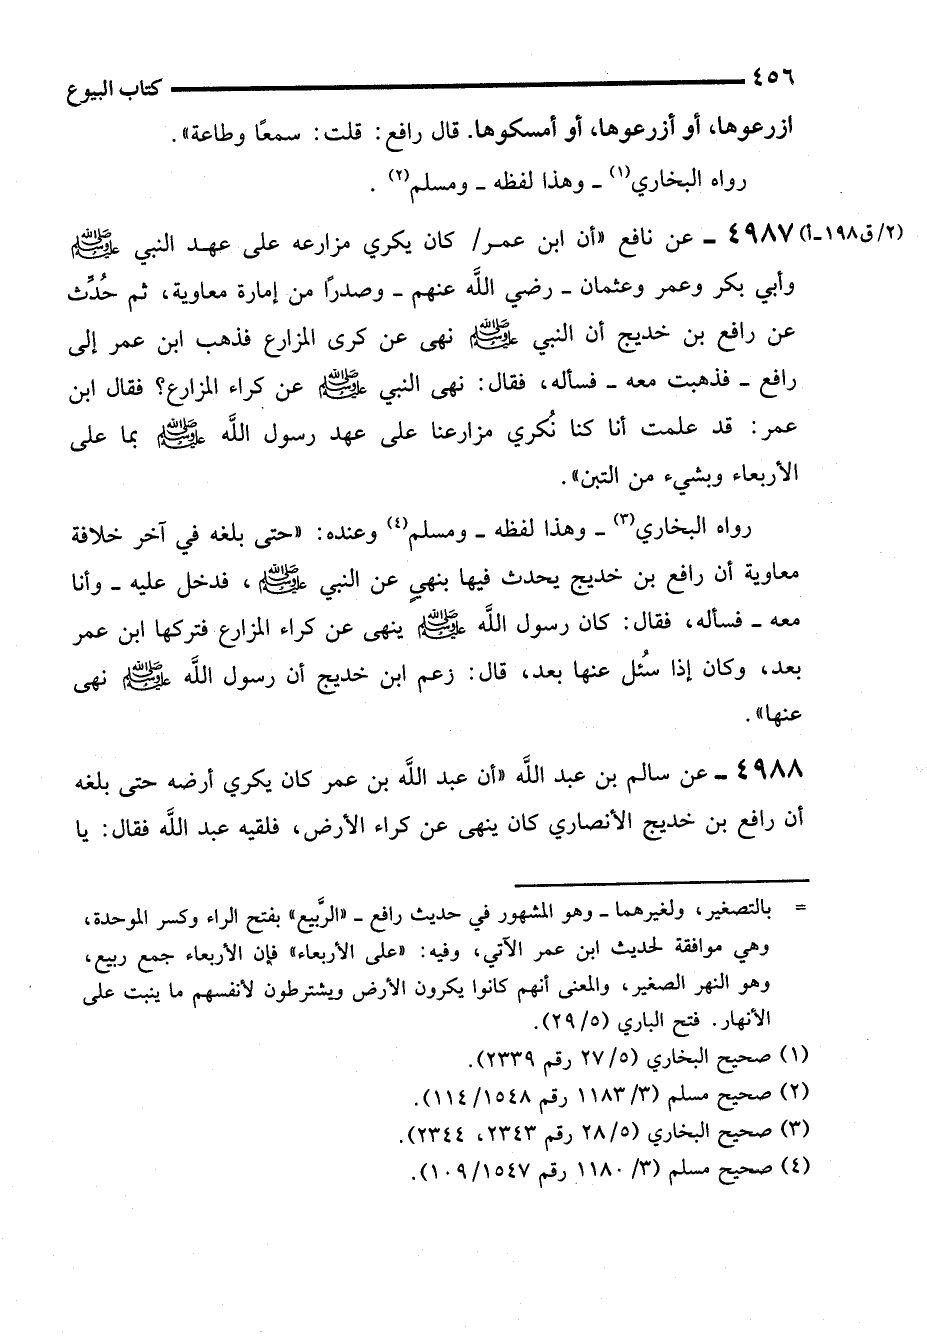 ٤٥٦ كتاب البيوع
ازرعوها، أو أزرعوها، أو أمسكوها. قال رافع: قلت: سمعًا وطاعة».
رواه البخاري(١) ـ وهذا لفظه ـ ومسلم(٢) .
(٢/ق١٩٨-أ) ٤٩٨٧ ـ عن نافع «أن ابن عمـر/ كان يكري مزارعه على عهـد النبي ﷺ
وأبي بكر وعمر وعثمان ـ رضي اللَّه عنهم ـ وصدرًا من إمارة معاوية، ثم حُدِّث
عن رافع بن خديج أن النبي ﷺ نهى عن كرى المزارع فذهب ابن عمر إلى
رافع ـ فذهبت معه ـ فسأله، فقال: نهى النبي ﷺ عن كراء المزارع؟ فقال ابن
عمر: قد علمت أنا كنا نُكري مزارعنا على عهد رسول اللَّه ﷺ بما على
الأربعاء وبشيء من التبن».
رواه البخاري(٣) ـ وهذا لفظه ـ ومسلم(٤) وعنده: «حتى بلغه في آخر خلافة
معاوية أن رافع بن خديج يحدث فيها بنهيٍ عن النبي ﷺ، فدخل عليه ـ وأنا
معه ـ فسأله، فقال: كان رسول اللَّه ﷺ ينهى عن كراء المزارع فتركها ابن عمر
بعد، وكان إذا سُئل عنها بعد، قال: زعم ابن خديج أن رسول اللَّه ﷺ نهى
عنها».
٤٩٨٨ ـ عن سالم بن عبد اللَّه «أن عبد اللَّه بن عمر كان يكري أرضه حتى بلغه
أن رافع بن خديج الأنصاري كان ينهى عن كراء الأرض، فلقيه عبد اللَّه فقال: يا
= بالتصغير، ولغيرهما ـ وهو المشهور في حديث رافع ـ «الرَّبيع» بفتح الراء وكسر الموحدة،
وهي موافقة لحديث ابن عمر الآتي، وفيه: «على الأربعاء» فإن الأربعاء جمع ربيع،
وهو النهر الصغير، والمعنى أنهم كانوا يكرون الأرض ويشترطون لأنفسهم ما ينبت على
الأنهار. فتح الباري (٢٩/٥).
(١) صحيح البخاري (٢٧/٥ رقم ٢٣٣٩).
(٢) صحيح مسلم (١١٨٣/٣ رقم ١١٤/١٥٤٨).
(٣) صحيح البخاري (٢٨/٥ رقم ٢٣٤٣، ٢٣٤٤).
(٤) صحيح مسلم (١١٨٠/٣ رقم ١٠٩/١٥٤٧).